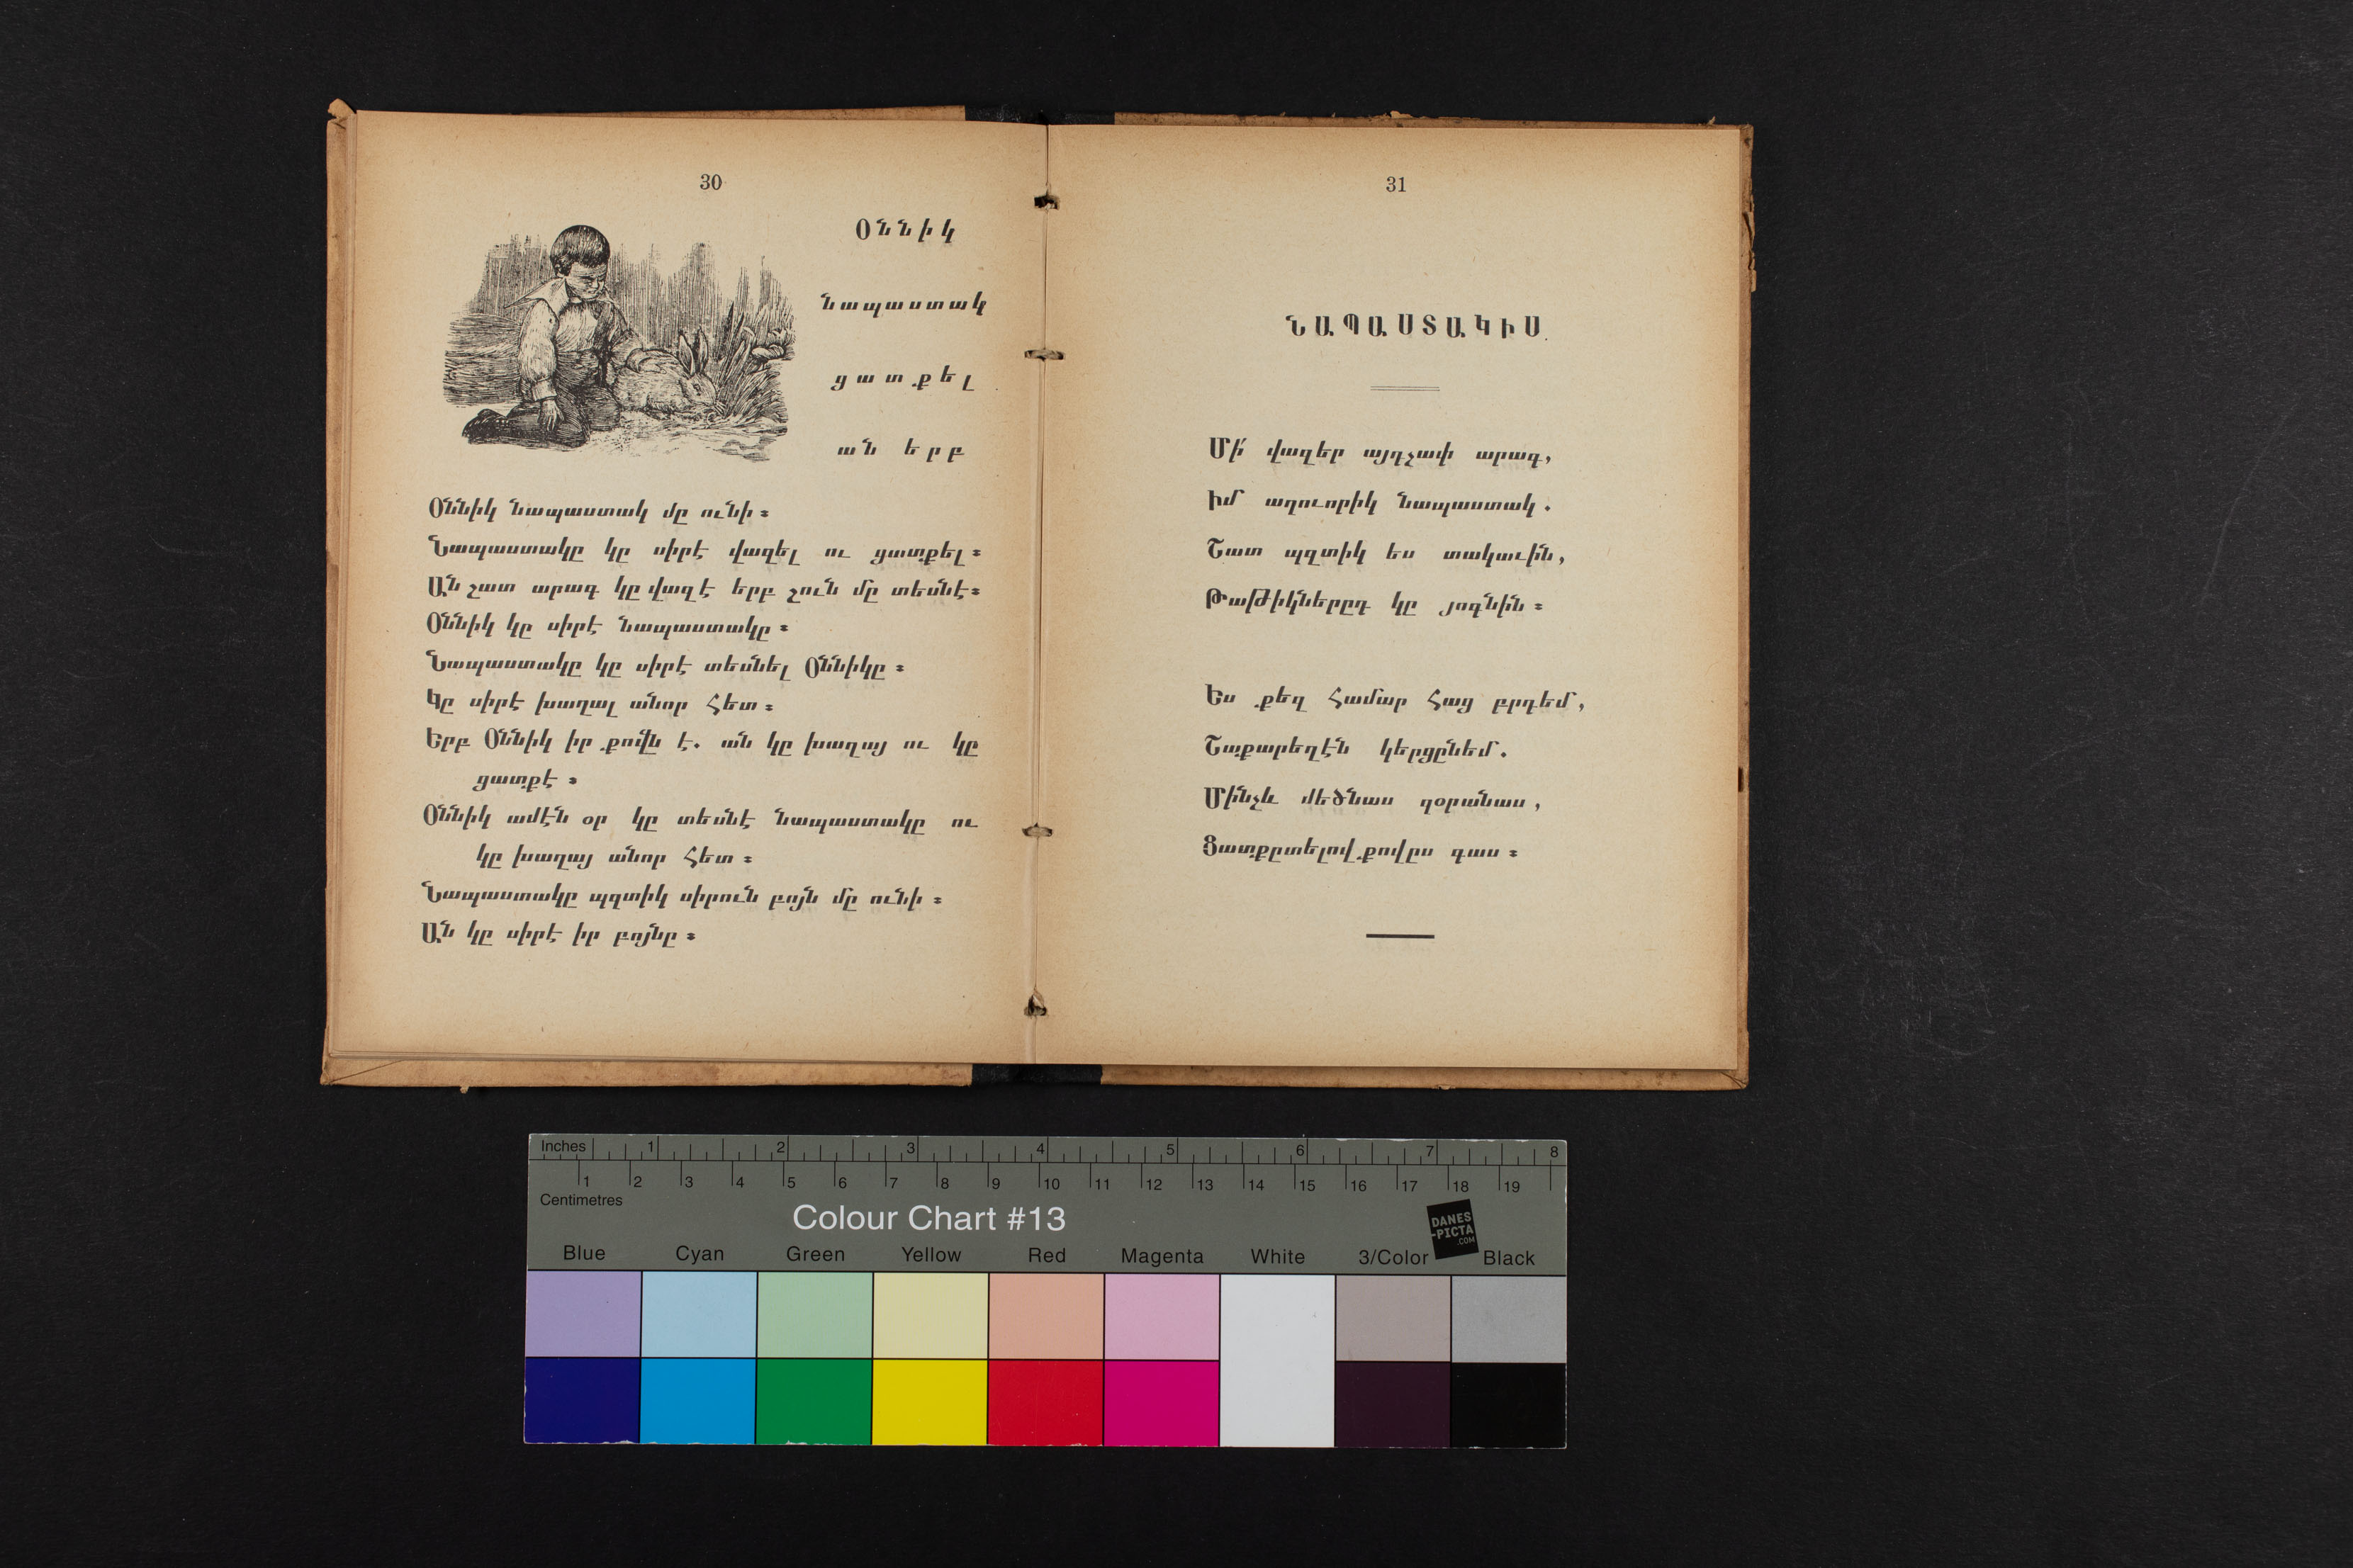 30
Օննիկ
նապաստակ
ցատքել
ան երբ
Օննիկ նապաստակ մը ունի։
Նապաստակը կը սիրէ վազել ու ցատքել։
Ան շատ արագ կը վազէ երբ շուն մը տեսնէ։
Օննիկ կը սիրէ նապաստակը։
Նապաստակը կը սիրէ տեսնել Օննիկը։
Կը սիրէ խաղալ անոր հետ։
Երբ Օննիկ իր քովն է. ան կը խաղայ ու կը
ցատքէ։
Օննիկ ամէն օր կը տեսնէ նապաստակը ու
կը խաղայ անոր հետ։
Նապաստակը պզտիկ սիրուն բոյն մը ունի։
Ան կը սիրէ իր բոյնը։
31
ՆԱՊԱՍՏԱԿԻՍ
Մի՛ վազեր այդչափ արագ,
Իմ աղուորիկ նապաստակ.
Շատ պզտիկ ես տակաւին,
Թաթիկներըդ կը յոգնին։
Ես քեզ համար հաց բրդեմ,
Շաքարեղէն կերցընեմ.
Մինչև մեծնաս զօրանաս,
Ցատքըտելով քովըս գաս։
Inches 1 2 3 4 5 6 7 8
1 2 3 4 5 6 7 8 9 10 11 12 13 14 15 16 17 18 19
Centimetres
Colour Chart #13
DANES
-PICTA
.COM
Blue Cyan Green Yellow Red Magenta White 3/Color Black